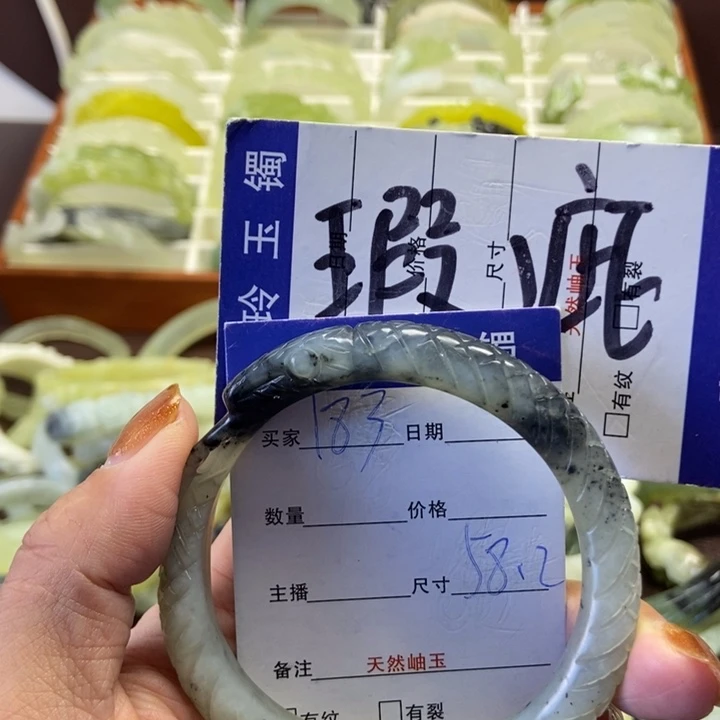 玲玉镯
瑕疵
日期
价格
尺寸
天然岫玉
有裂
有纹
镯
买家 183 日期
数量 价格
主播 尺寸 58.2
备注 天然岫玉
有纹 有裂